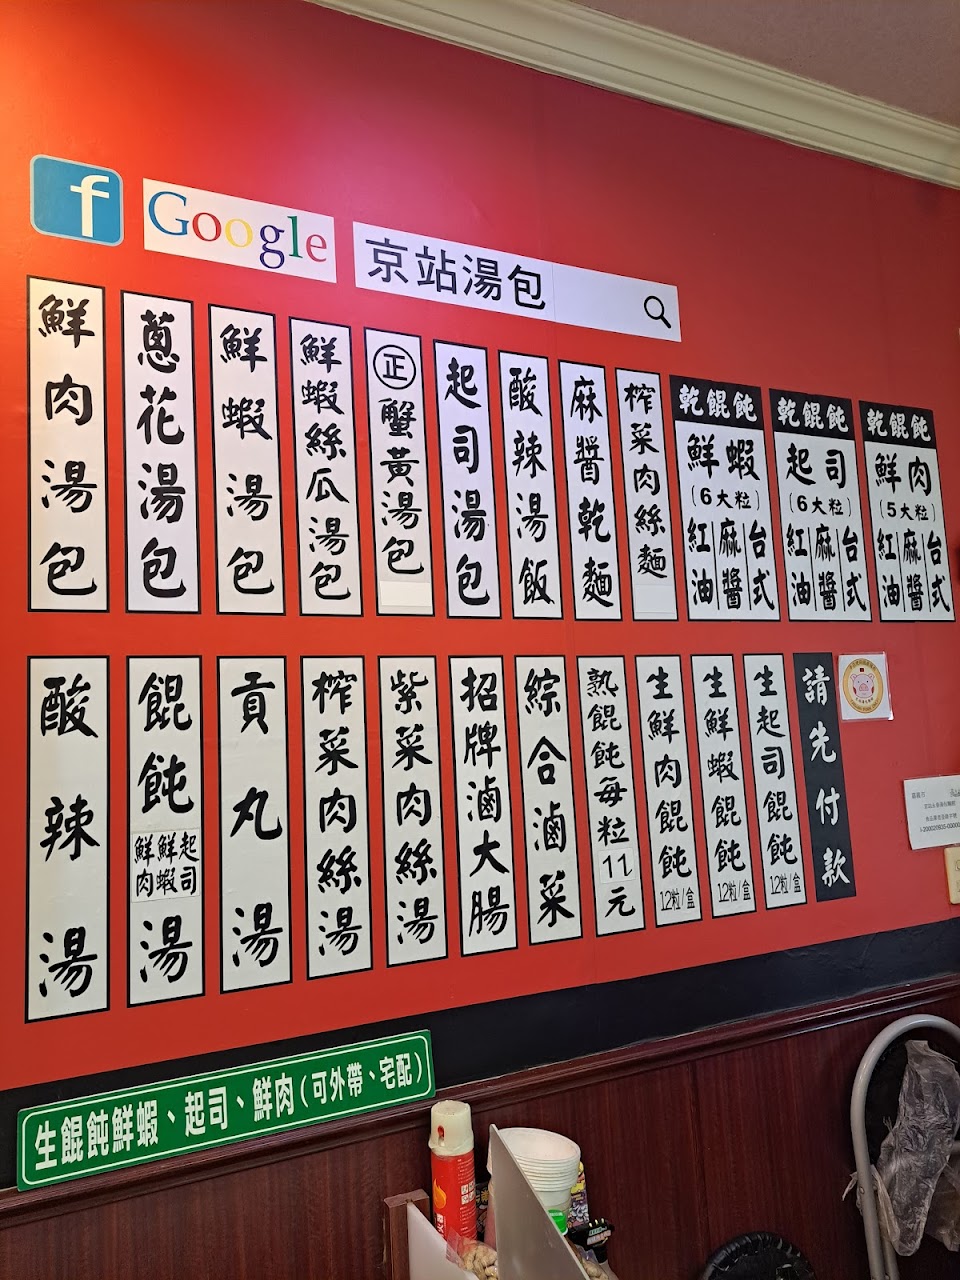 f
Google
京站湯包
鮮肉湯包
蔥花湯包
鮮蝦湯包
鮮蝦絲瓜湯包
正蟹黃湯包
起司湯包
酸辣湯飯
麻醬乾麵
榨菜肉絲麵
乾餛飩
鮮蝦
(6大粒)
紅油
麻醬
台式
乾餛飩
起司
(6大粒)
紅油
麻醬
台式
乾餛飩
鮮肉
(5大粒)
紅油
麻醬
台式
酸辣湯
餛飩
鮮肉
鮮蝦
起司
湯
貢丸湯
榨菜肉絲湯
紫菜肉絲湯
招牌滷大腸
綜合滷菜
熟餛飩每粒11元
生鮮肉餛飩
12粒/盒
生鮮蝦餛飩
12粒/盒
生起司餛飩
12粒/盒
請先付款
生餛飩鮮蝦、起司、鮮肉(可外帶、宅配)